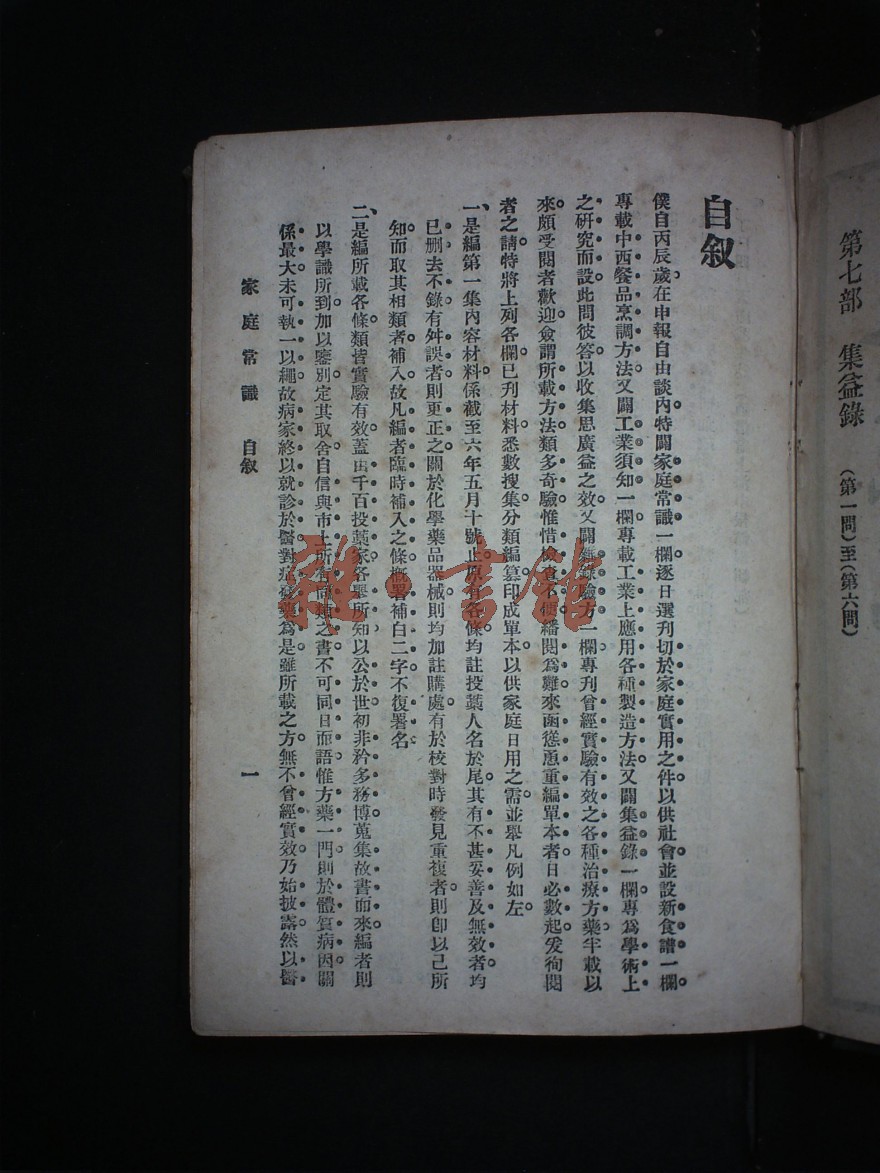 第七部 集益錄 (第一問)至(第六問)
自叙
僕自丙辰歲在申報自由談內特闢家庭常識一欄逐日選刋切於家庭實用之件以供社會並設新食譜一欄
專載中西餐品烹調方法又闢工業須知一欄專載工業上應用各種製造方法又闢集益錄一欄專爲學術上
之研究而設此問彼答以收集思廣益之效又闢驗方一欄專刋曾經實驗有效之各種治療方藥半載以
來頗受閱者歡迎僉謂所載方法類多奇驗惟惜檢查不便繙閱爲難來函慫恿重編單本者日必數起爰徇閱
者之請特將上列各欄已刋材料悉數搜集分類編纂印成單本以供家庭日用之需並舉凡例如左
一、是編第一集內容材料係截至六年五月十號止原有各條均註投藁人名於尾其有不甚妥善及無效者均
已删去不錄有舛誤者則更正之關於化學藥品器械則均加註購處有於校對時發見重複者則卽以己所
知而取其相類者補入故凡編者臨時補入之條概署補白二字不復署名
二、是編所載各條類皆實驗有效蓋由千百投藁家各舉所知以公於世初非矜多務博蒐集故書而來編者則
以學識所到加以鑒別定其取舍自信與市上所行同類之書不可同日而語惟方藥一門則於體質病因關
係最大未可執一以繩故病家終以就診於醫對症發藥爲是雖所載之方無不曾經實效乃始披露然以醫
家庭常識 自叙 一
雜·書館